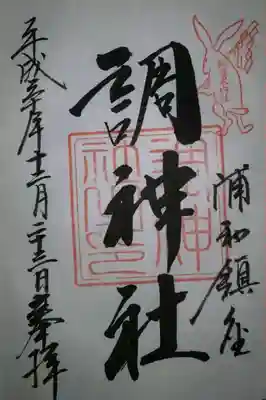 浦和鎮座
調神社
平成三十年十二月二十三日奉拝